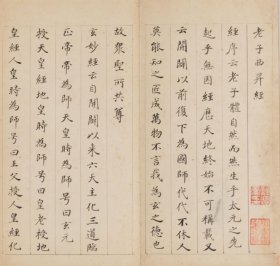 老子西昇經
經序云老子體自然而然生乎太元之先
起乎無因經歷天地終始不可稱載又
云開闢以前復下為國師代代不休人
莫能知之匠成萬物不言我為玄之德也
故眾聖所共尊
玄妙經云自開闢以來六天主化三道臨
正帝帝為師天皇時為師號曰玄元
授天皇經地皇時為師號曰皇老授地
皇經人皇時為師號曰王父授人皇經化